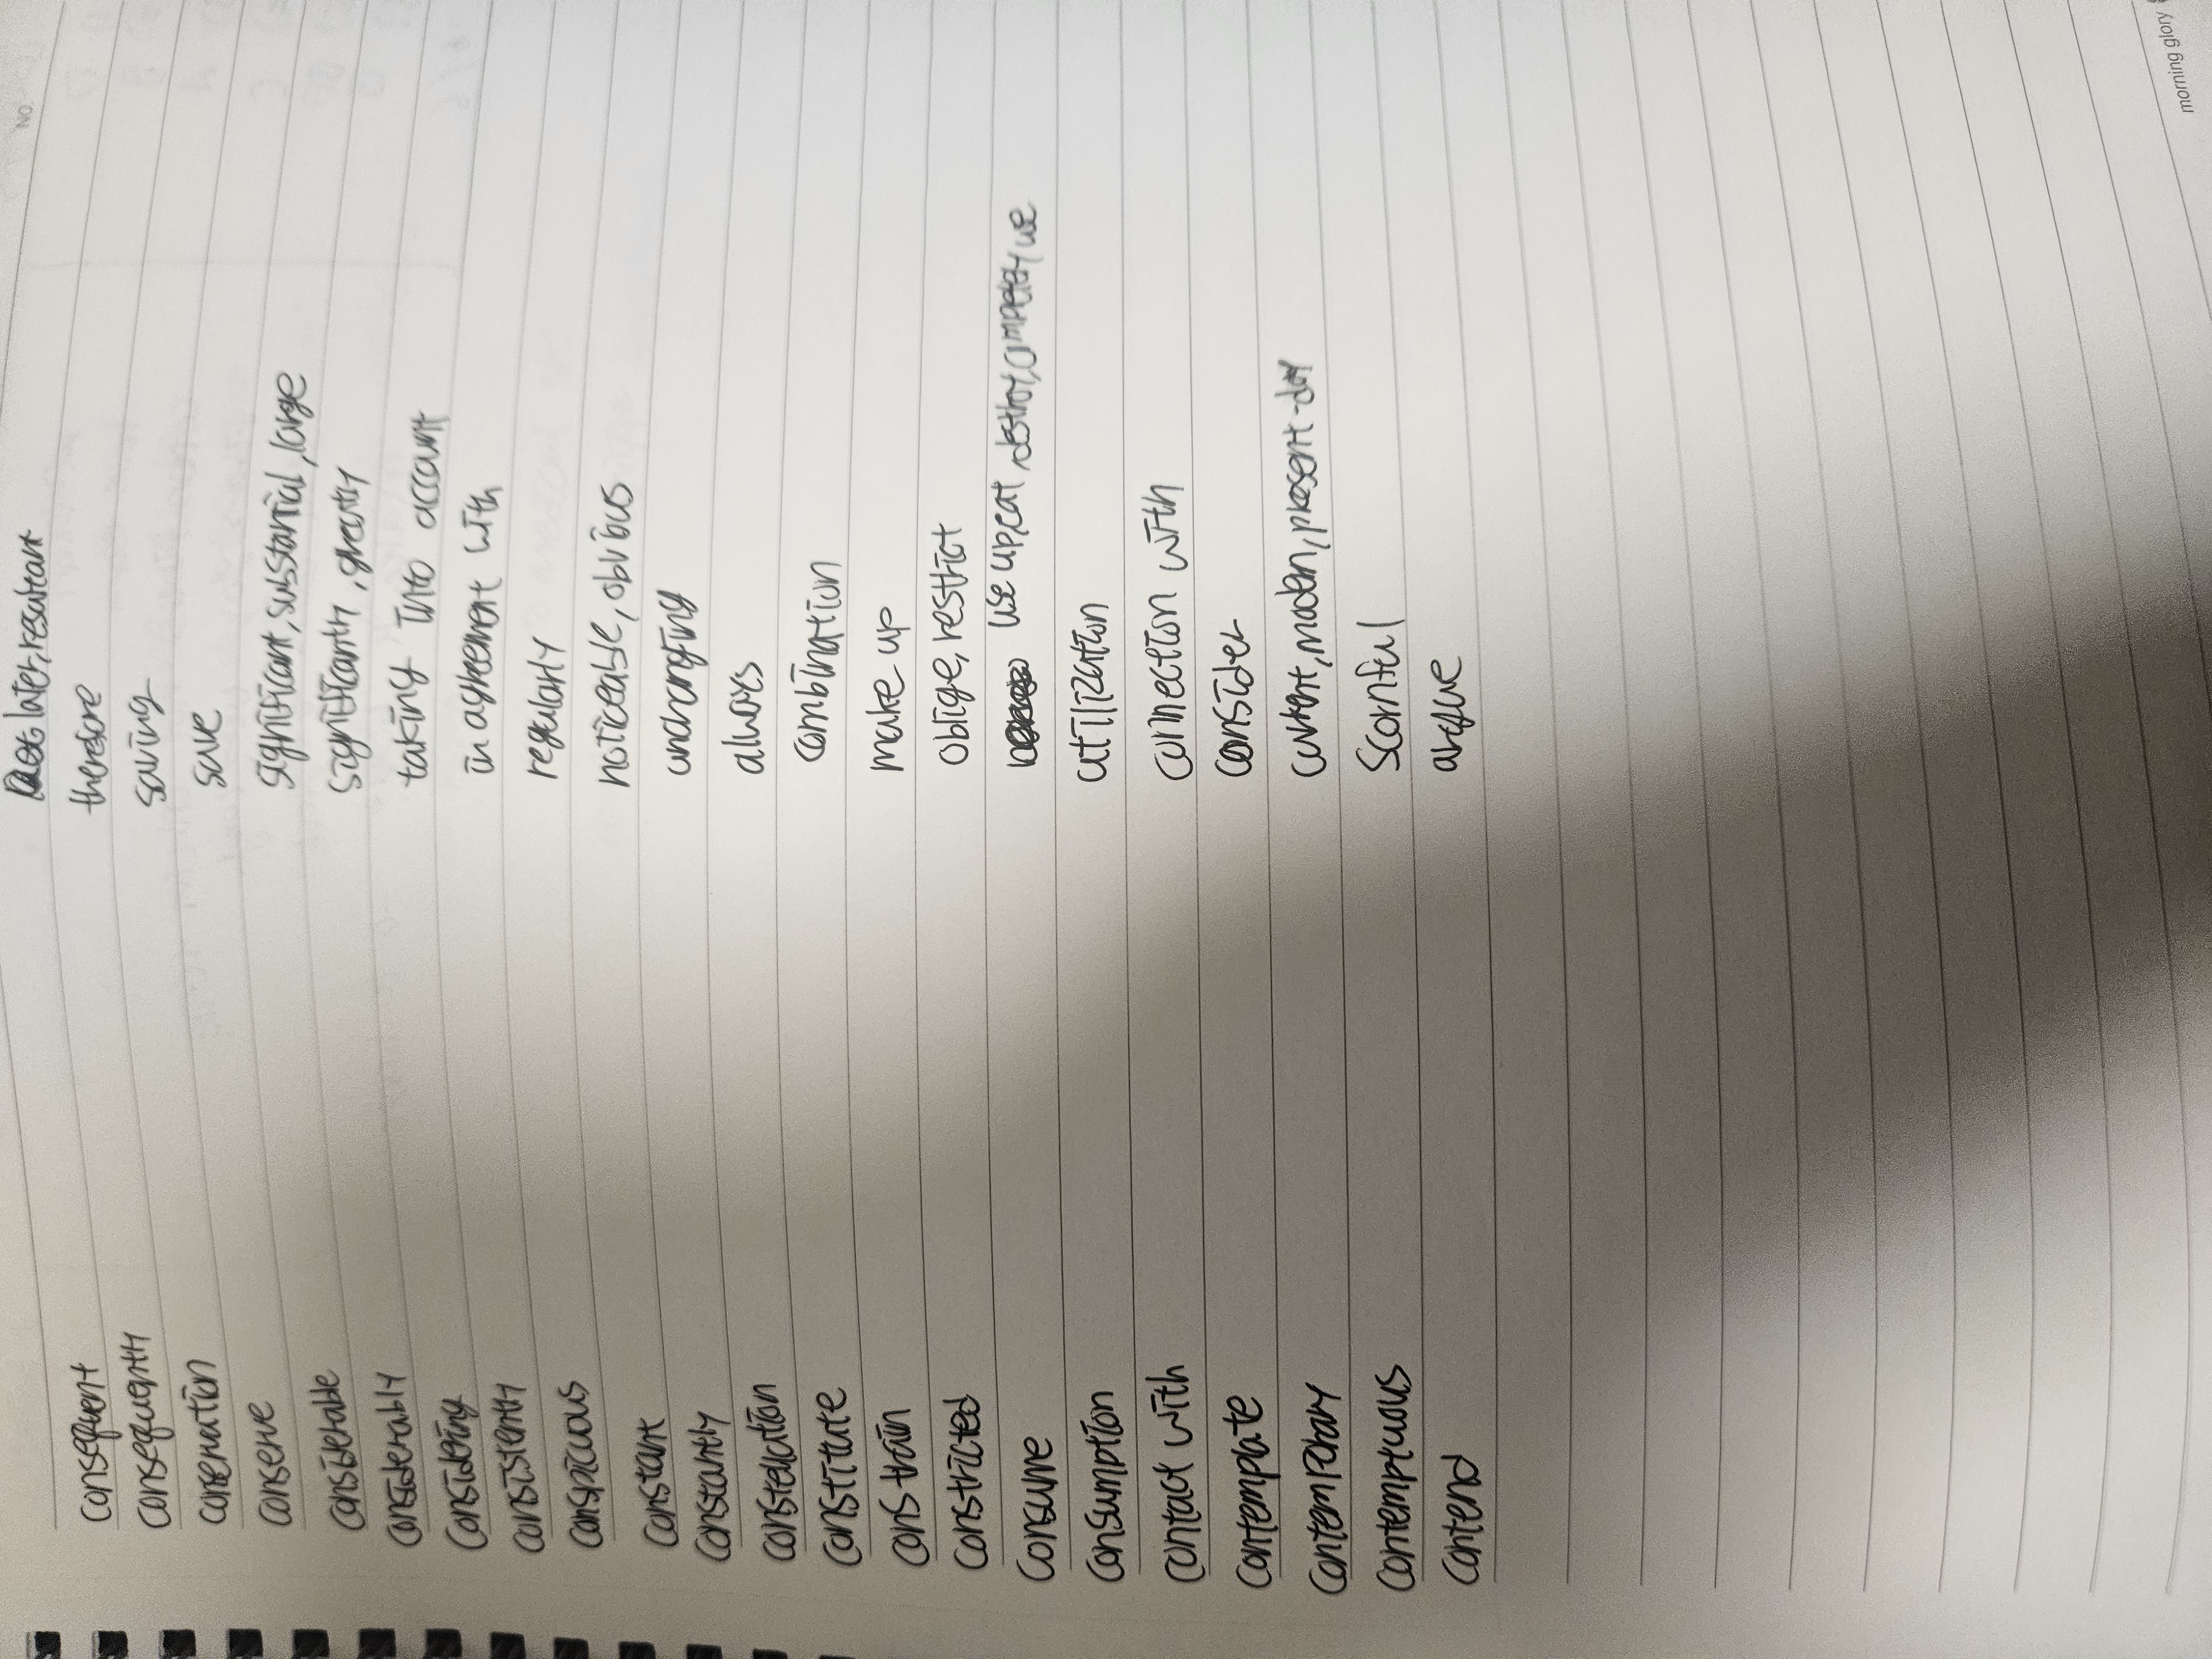 NO.
consequent later, resultant
consequently therefore
conservation saving
conserve save
considerable significant, substantial, large
considerably significantly, greatly
considering taking into account
consistently in agreement with
regularly
conspicuous noticeable, obvious
constant unchanging
constantly always
constellation combination
constitute make up
constrain oblige, restrict
constricted
consume use up, eat, destroy, completely use
consumption utilization
contact with connection with
contemplate consider
contemporary current, modern, present-day
contemptuous scornful
contend argue
morning glory